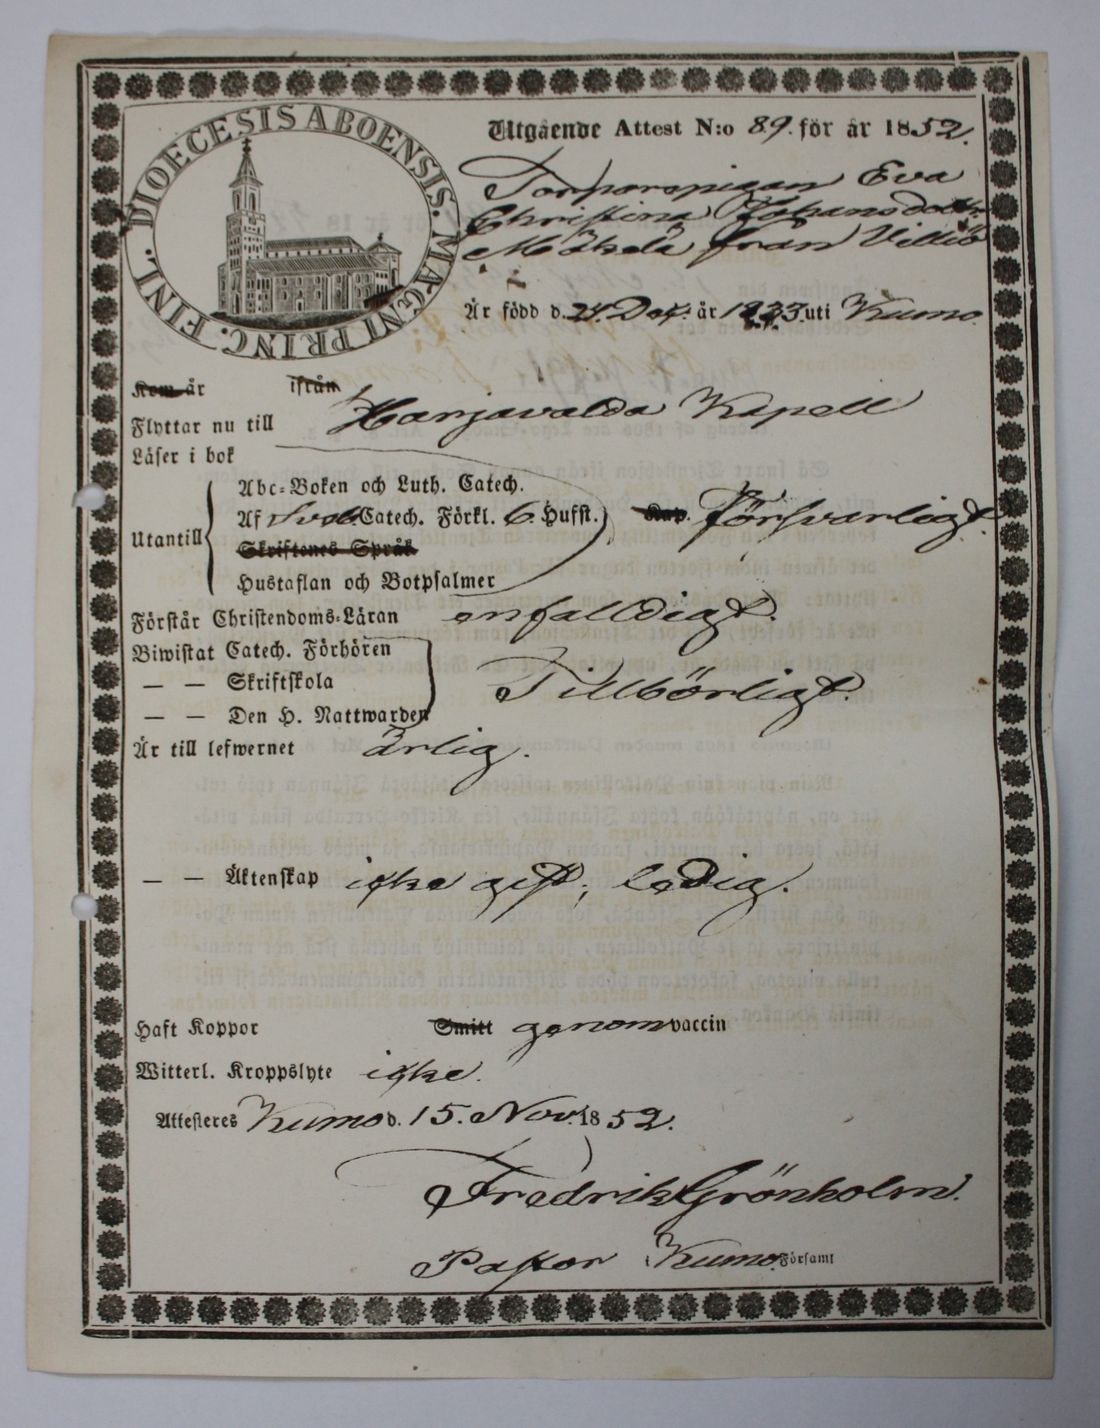 DIOECESIS ABOENSIS. MAGNI PRINC. FINL.
Utgående Attest N:o 89. för år 1852.
Torparepigan Eva
Christina Johansdotter
Mäkelä från Villiö
Är född d. 24 Dec. år 1833 uti Kumo.
Kom år ifrån
Flyttar nu till Harjavalda Kapell
Läser i bok
Abc-Boken och Luth. Catech.
Utantill Af Sveb Catech. Förkl. 6 Hufst. Kap. försvarligt.
Skriftenes Språk
Hustaflan och Botpsalmer
Förstår Christendoms-Läran enfalldigt.
Biwistat Catech. Förhören
— — Skriftskola Tillbörligt.
— — Den H. Nattwarden
Är till lefwernet ärlig.
— — Äktenskap icke gift; ledig.
Haft Koppor Smitt genom vaccin
Witterl. Kroppslyte icke.
Attesteres Kumo d. 15. Nov. 1852.
Fredrik Grönholm.
Pastor i Kumo Församl